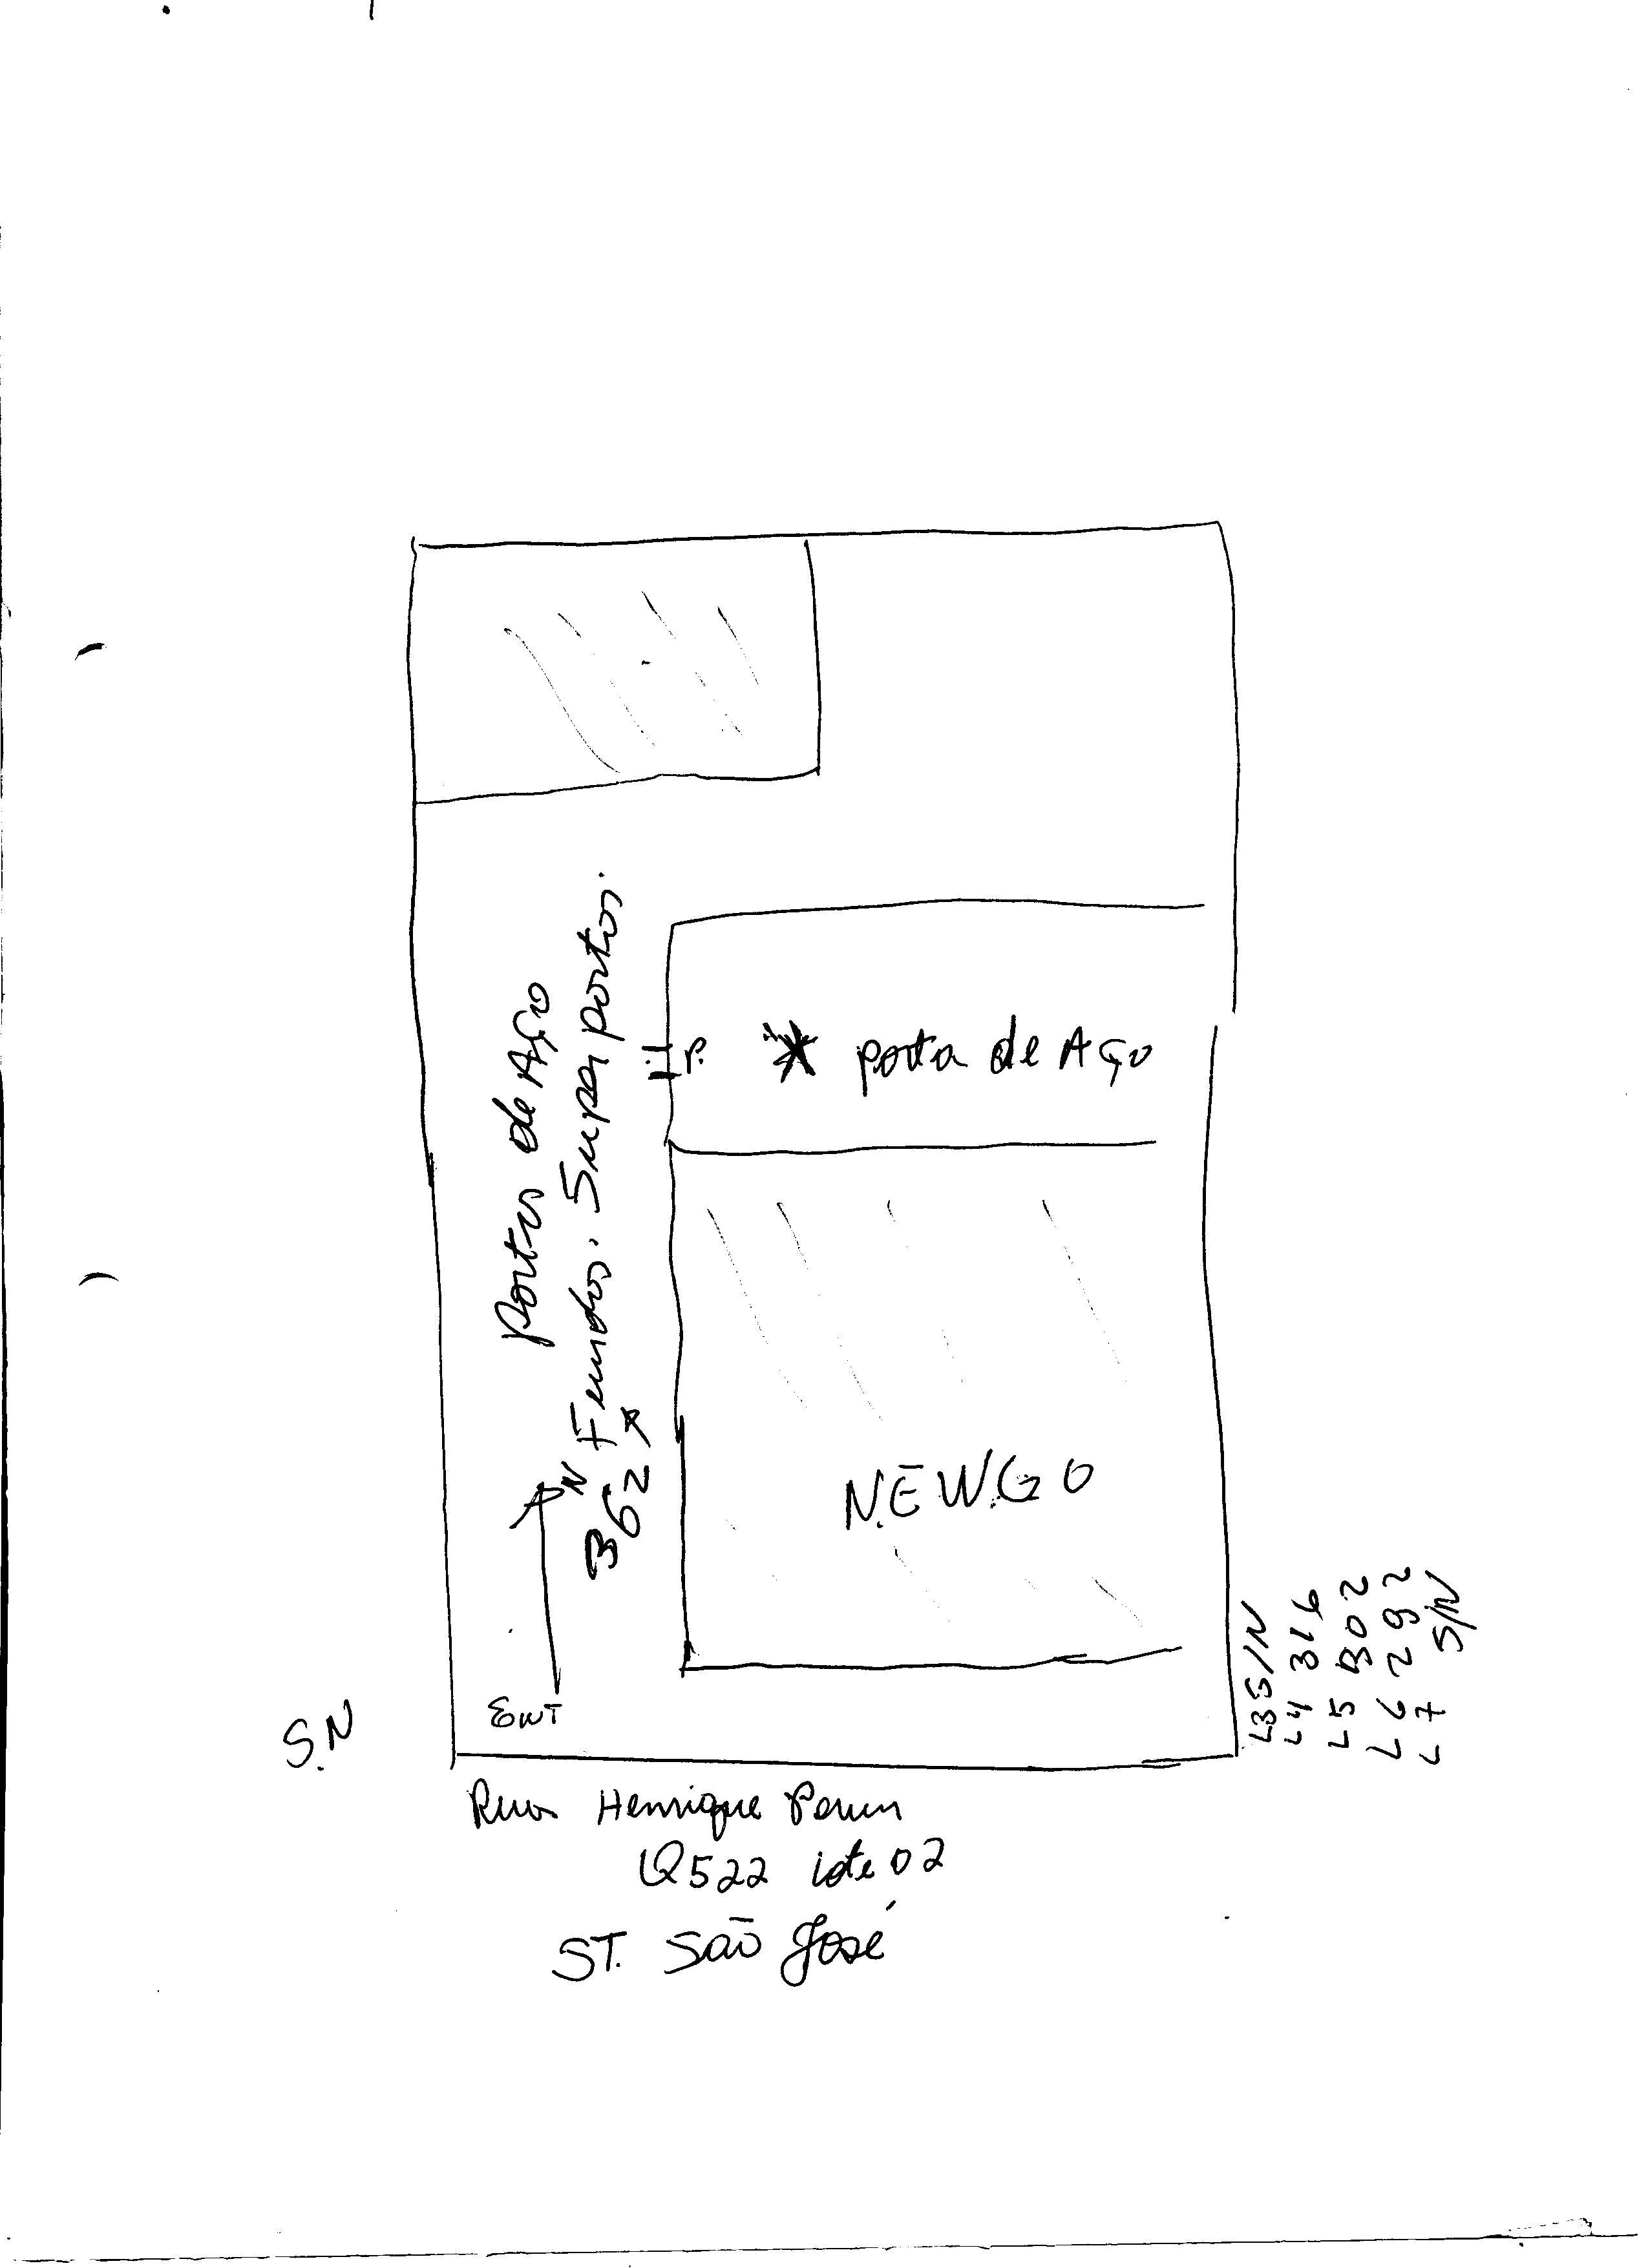 porta de Aço
P.
Portas de Aço
N Fundos. Super portas.
362
NEWGO
Ent
S.N
L3 S/N
L4 316
L5 302
L6 292
L7 S/N
Rua Henrique
Q522 lote 02
ST. São José